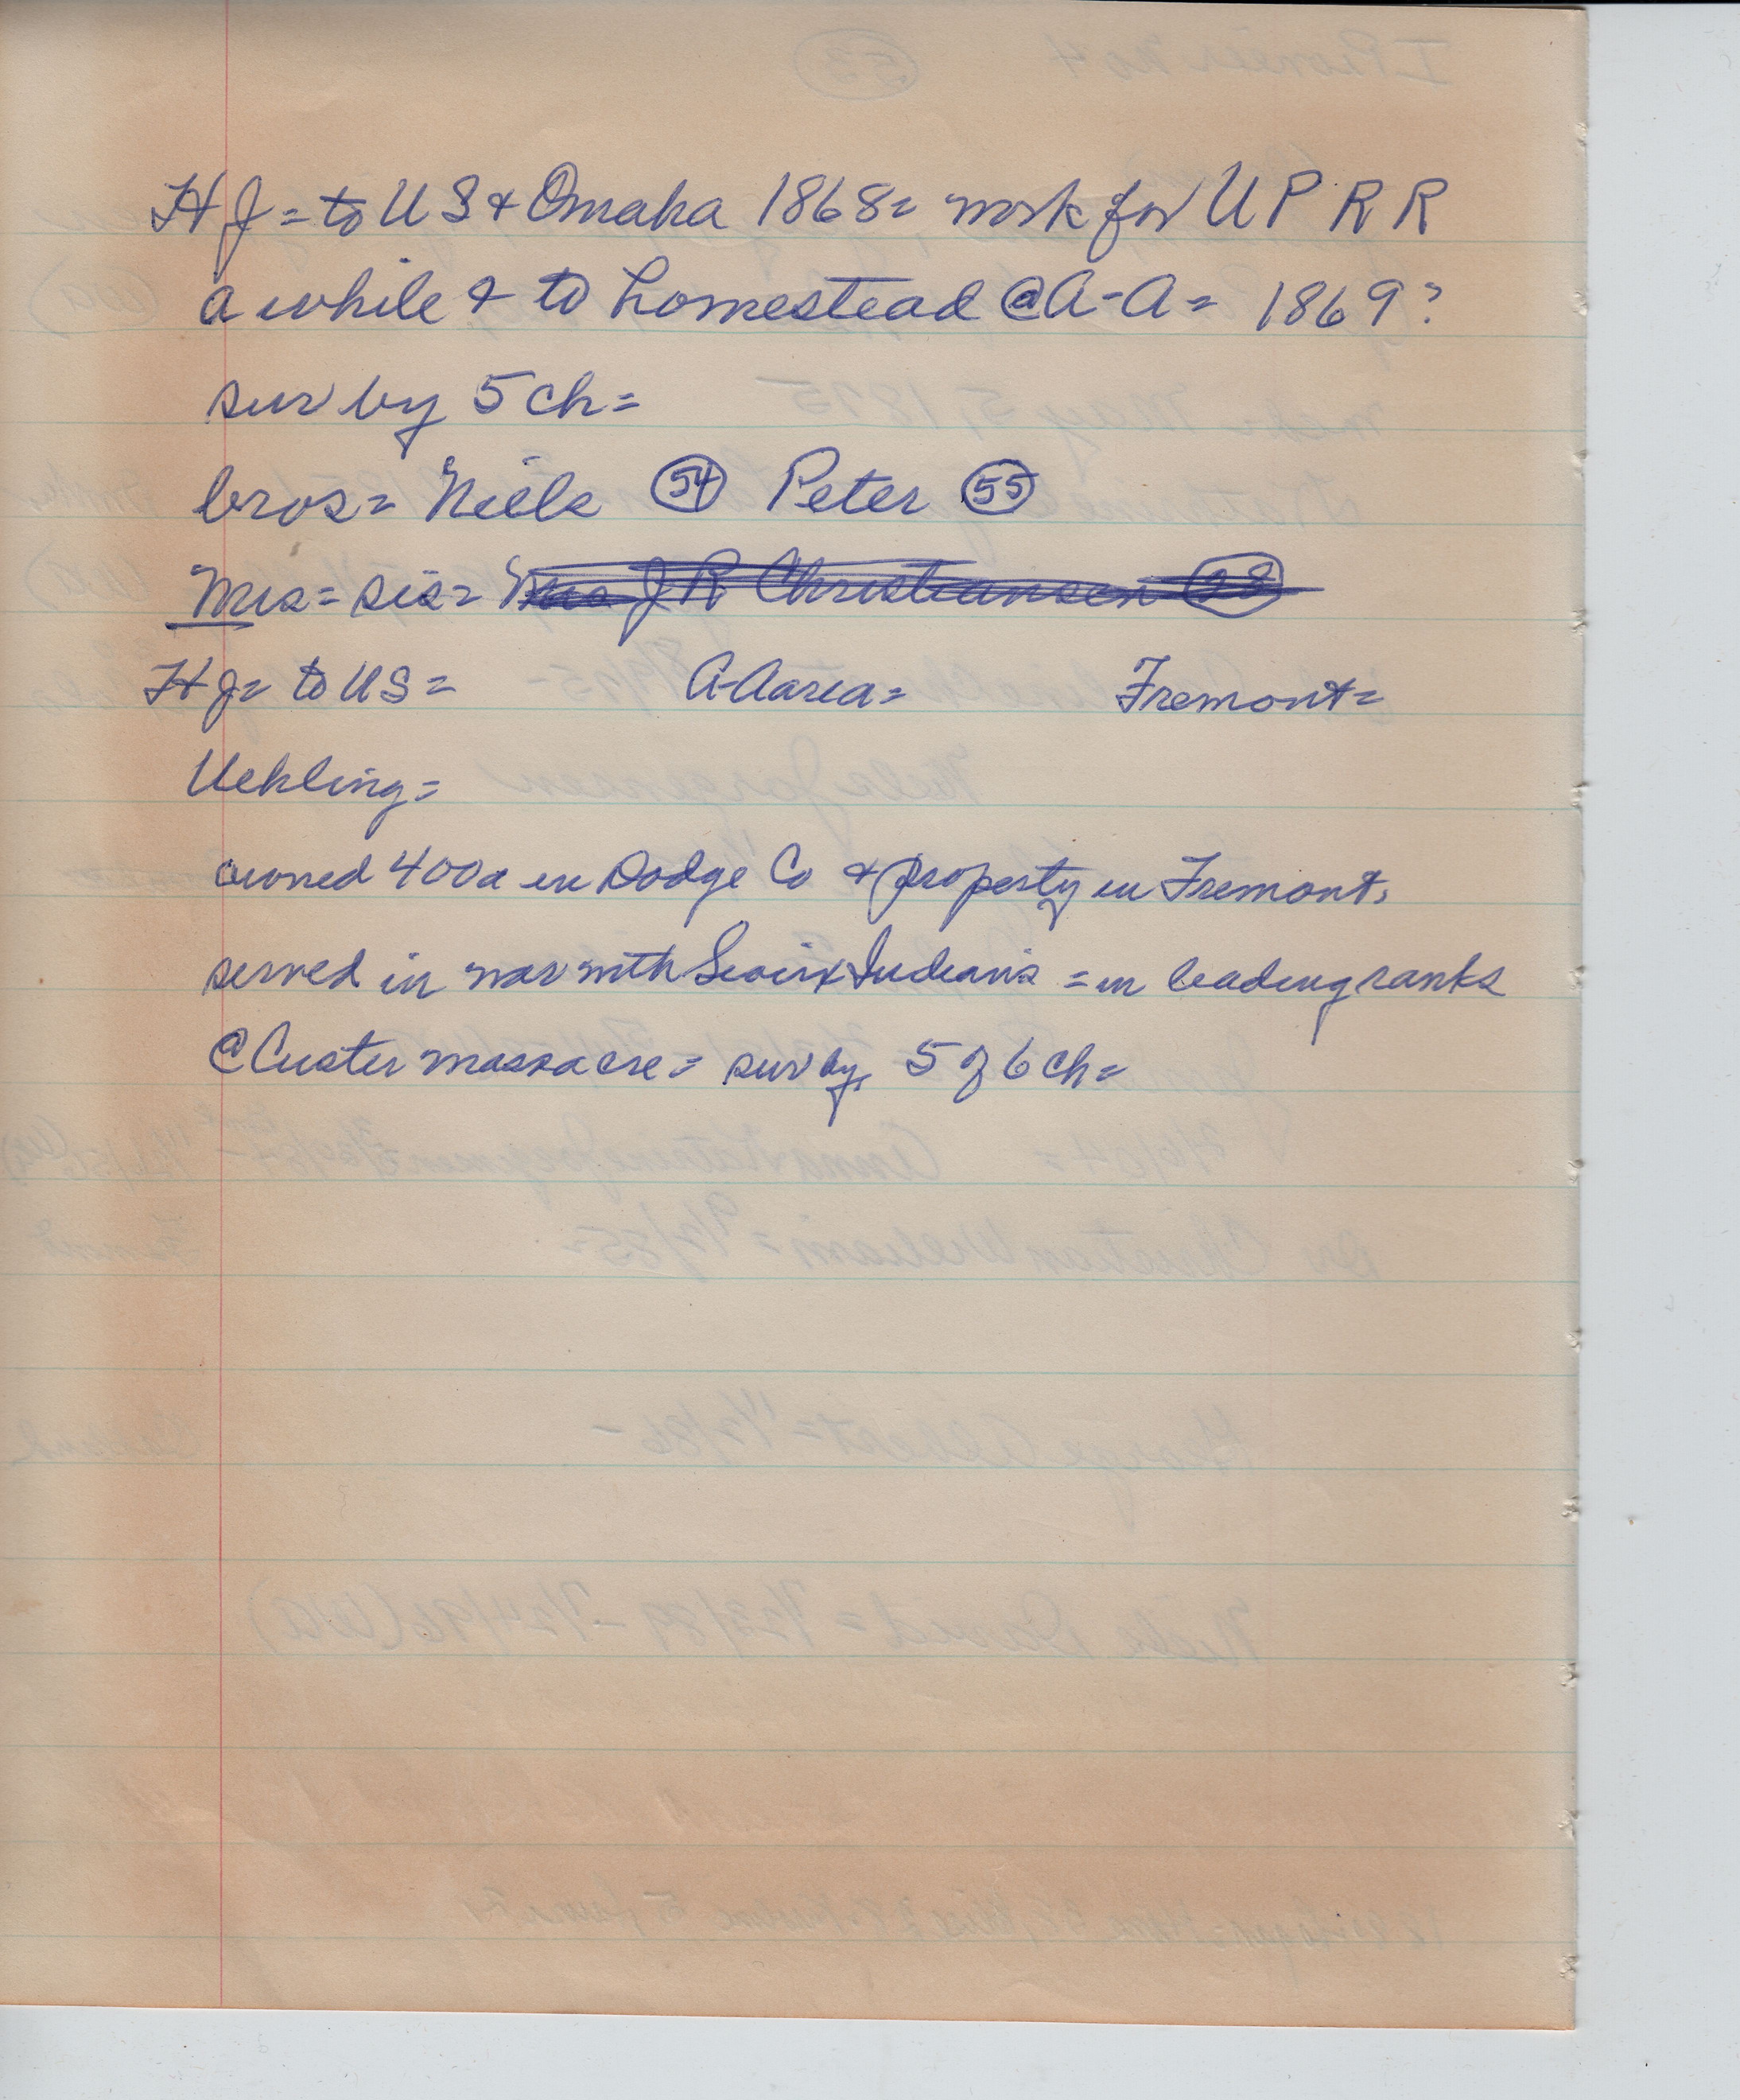 HJ = to US & Omaha 1868 = work for UPRR
a while & to homestead @ A-A = 1869?
sur by 5 ch =
bros = Niels (54) Peter (55)
Mrs = sis = Mrs J R Christiansen (28)
HJ = to US = A-A area = Fremont =
Uehling =
owned 400a in Dodge Co & property in Fremont,
served in war with Sioux Indians = in leading ranks
@ Custer massacre = sur by 5 of 6 ch =